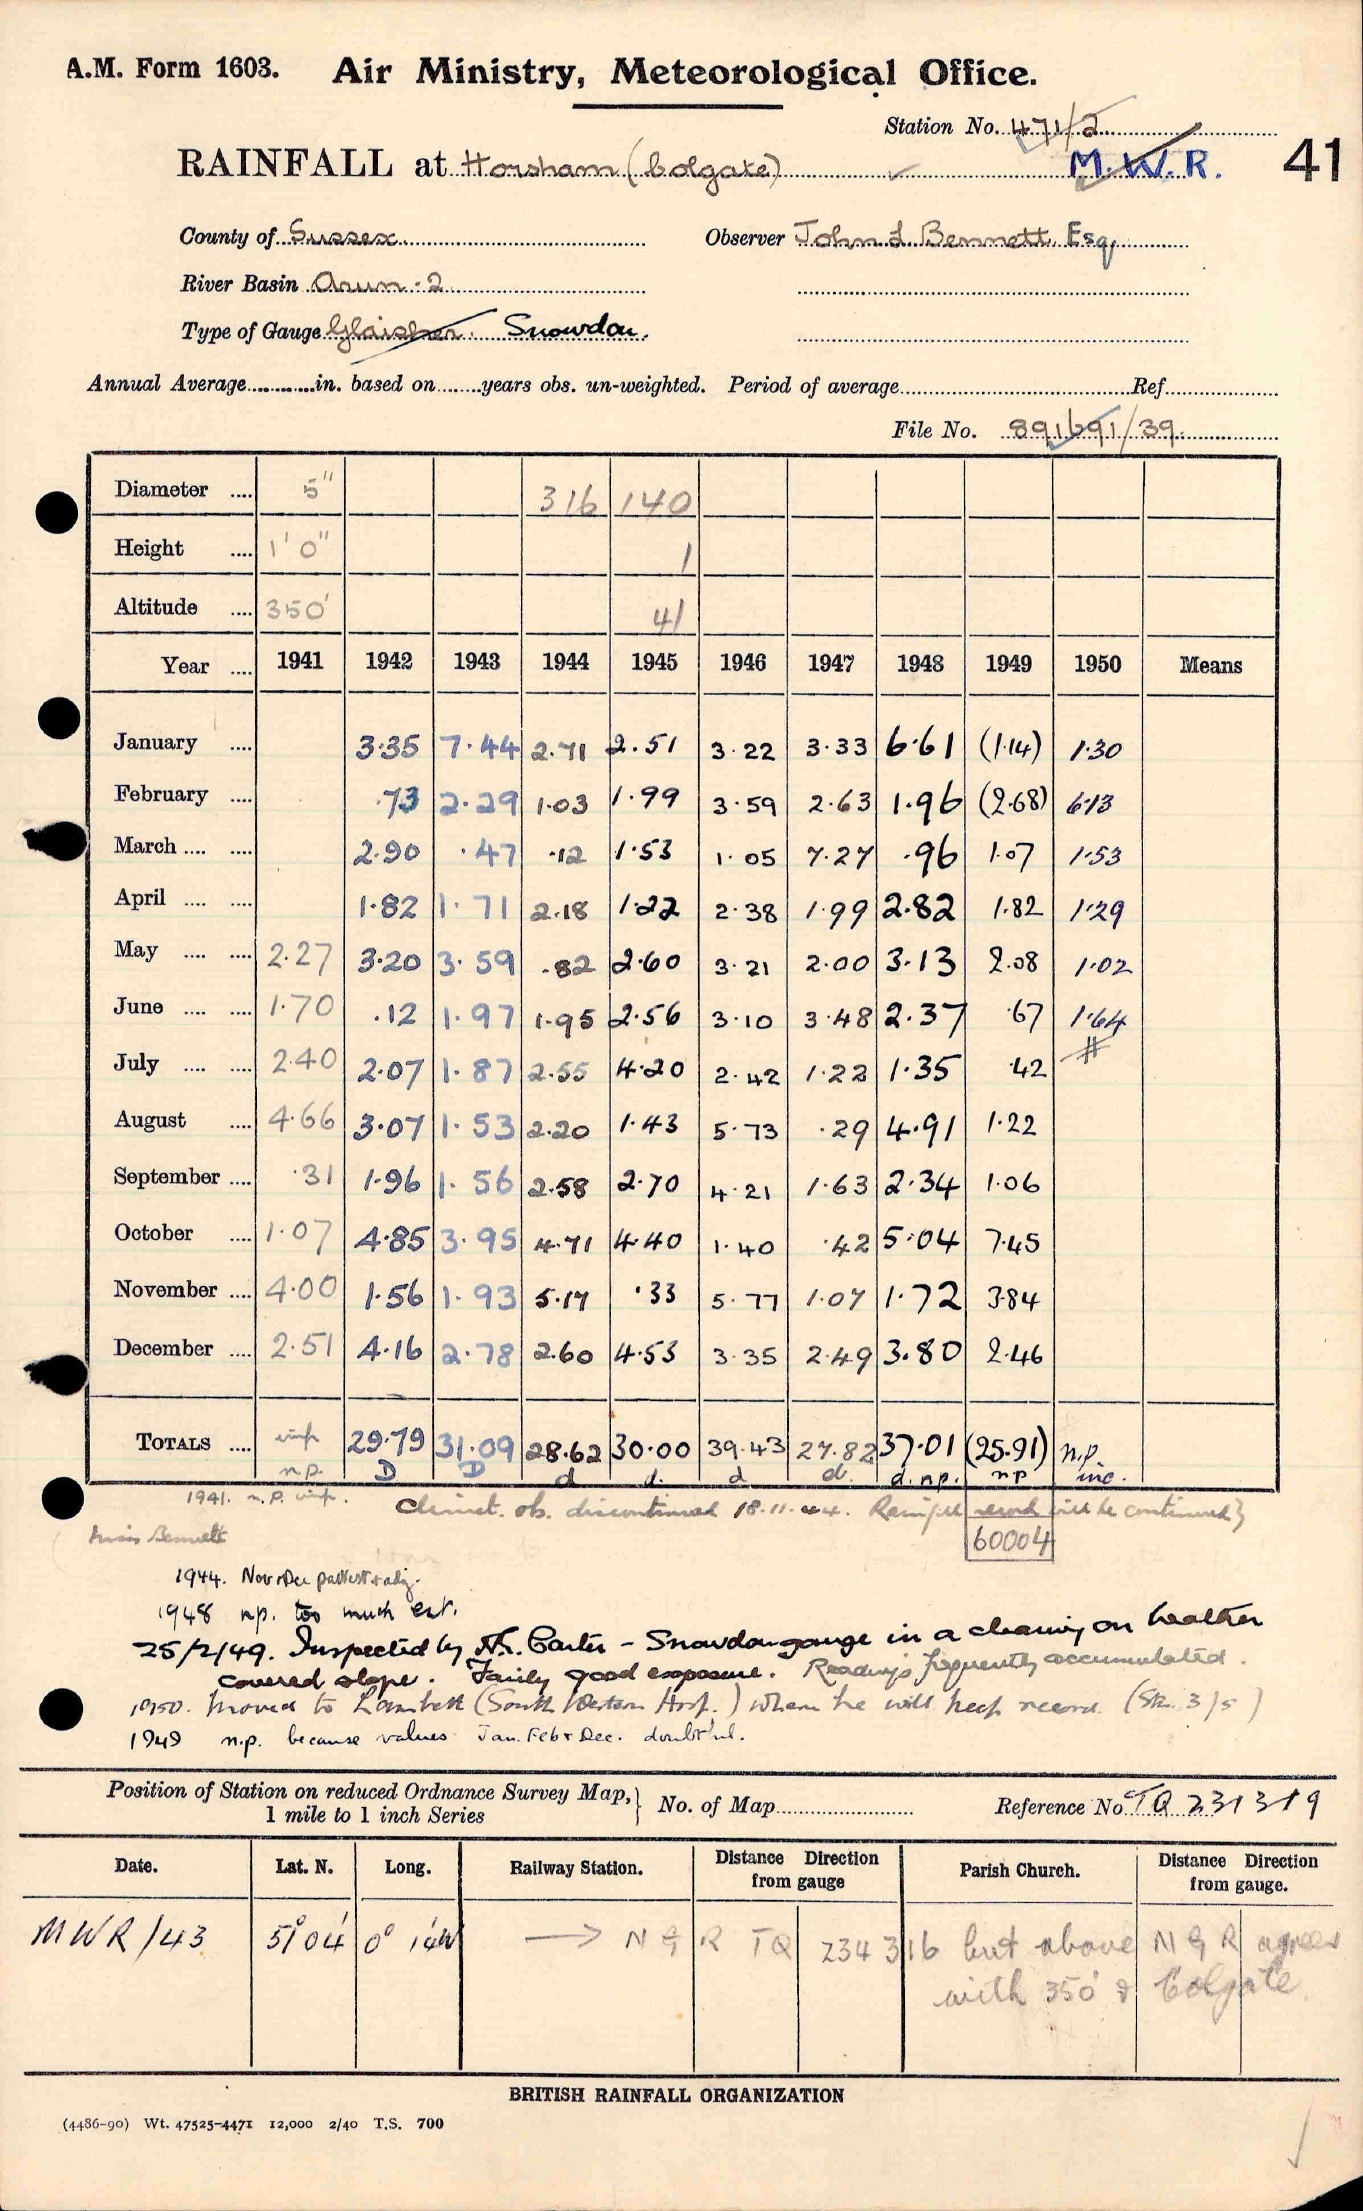 A.M. Form 1603. Air Ministry, Meteorological Office.
Station No. 471/2
RAINFALL at Horsham (Colgate) M.W.R. 41
County of Sussex Observer John L Bennett Esq,
River Basin Arun - 2
Type of Gauge Glaisher. Snowdon.
Annual Average............in. based on.......years obs. un-weighted. Period of average.......... Ref..........
File No. 891691/39
Diameter .... 5" 316 140
Height .... 1' 0" 1
Altitude .... 350' 41
Year .... 1941 1942 1943 1944 1945 1946 1947 1948 1949 1950 Means
January .... 3.35 7.44 2.71 2.51 3.22 3.33 6.61 (1.14) 1.30
February .... .73 2.29 1.03 1.99 3.59 2.63 1.96 (2.68) 6.13
March .... .... 2.90 .47 .12 1.53 1.05 7.27 .96 1.07 1.53
April .... .... 1.82 1.71 2.18 1.22 2.38 1.99 2.82 1.82 1.29
May .... .... 2.27 3.20 3.59 .82 2.60 3.21 2.00 3.13 2.08 1.02
June .... .... 1.70 .12 1.97 1.95 2.56 3.10 3.48 2.37 .67 1.64
July .... .... 2.40 2.07 1.87 2.55 4.20 2.42 1.22 1.35 .42 #
August .... 4.66 3.07 1.53 2.20 1.43 5.73 .29 4.91 1.22
September .... .31 1.96 1.56 2.58 2.70 4.21 1.63 2.34 1.06
October .... 1.07 4.85 3.95 4.71 4.40 1.40 .42 5.04 7.45
November .... 4.00 1.56 1.93 5.17 .33 5.77 1.07 1.72 3.84
December .... 2.51 4.16 2.78 2.60 4.53 3.35 2.49 3.80 2.46
TOTALS .... 29.79 31.09 28.62 30.00 39.43 27.82 37.01 (25.91) n.p.
n.p. D D d d. d d. d. np. np inc.
1941. n.p. Climat. obs. discontinued 18.11.44. Rainfall record will be continued }
Miss Bennett 60004
1944. Nov & Dec
1948 n.p. too much est.
25/2/49. Inspected by Mr. Carter - Snowdon gauge in a clearing on heather
covered slope. Fairly good exposure. Readings frequently accumulated.
1950. Moved to Lambeth (South Western Hosp.) where he will keep record. (Stn. 3/5)
1949 n.p. because values Jan. Feb & Dec. doubtful.
Position of Station on reduced Ordnance Survey Map, } No. of Map............ Reference No TQ 231319
1 mile to 1 inch Series
Date. Lat. N. Long. Railway Station. Distance Direction from gauge Parish Church. Distance Direction from gauge.
MWR/43 51° 04' 0° 14'W → N G R TQ 234 316 but above N G R agrees
with 350' & Colgate.
BRITISH RAINFALL ORGANIZATION
(4486-90) Wt. 47525-4471 12,000 2/40 T.S. 700